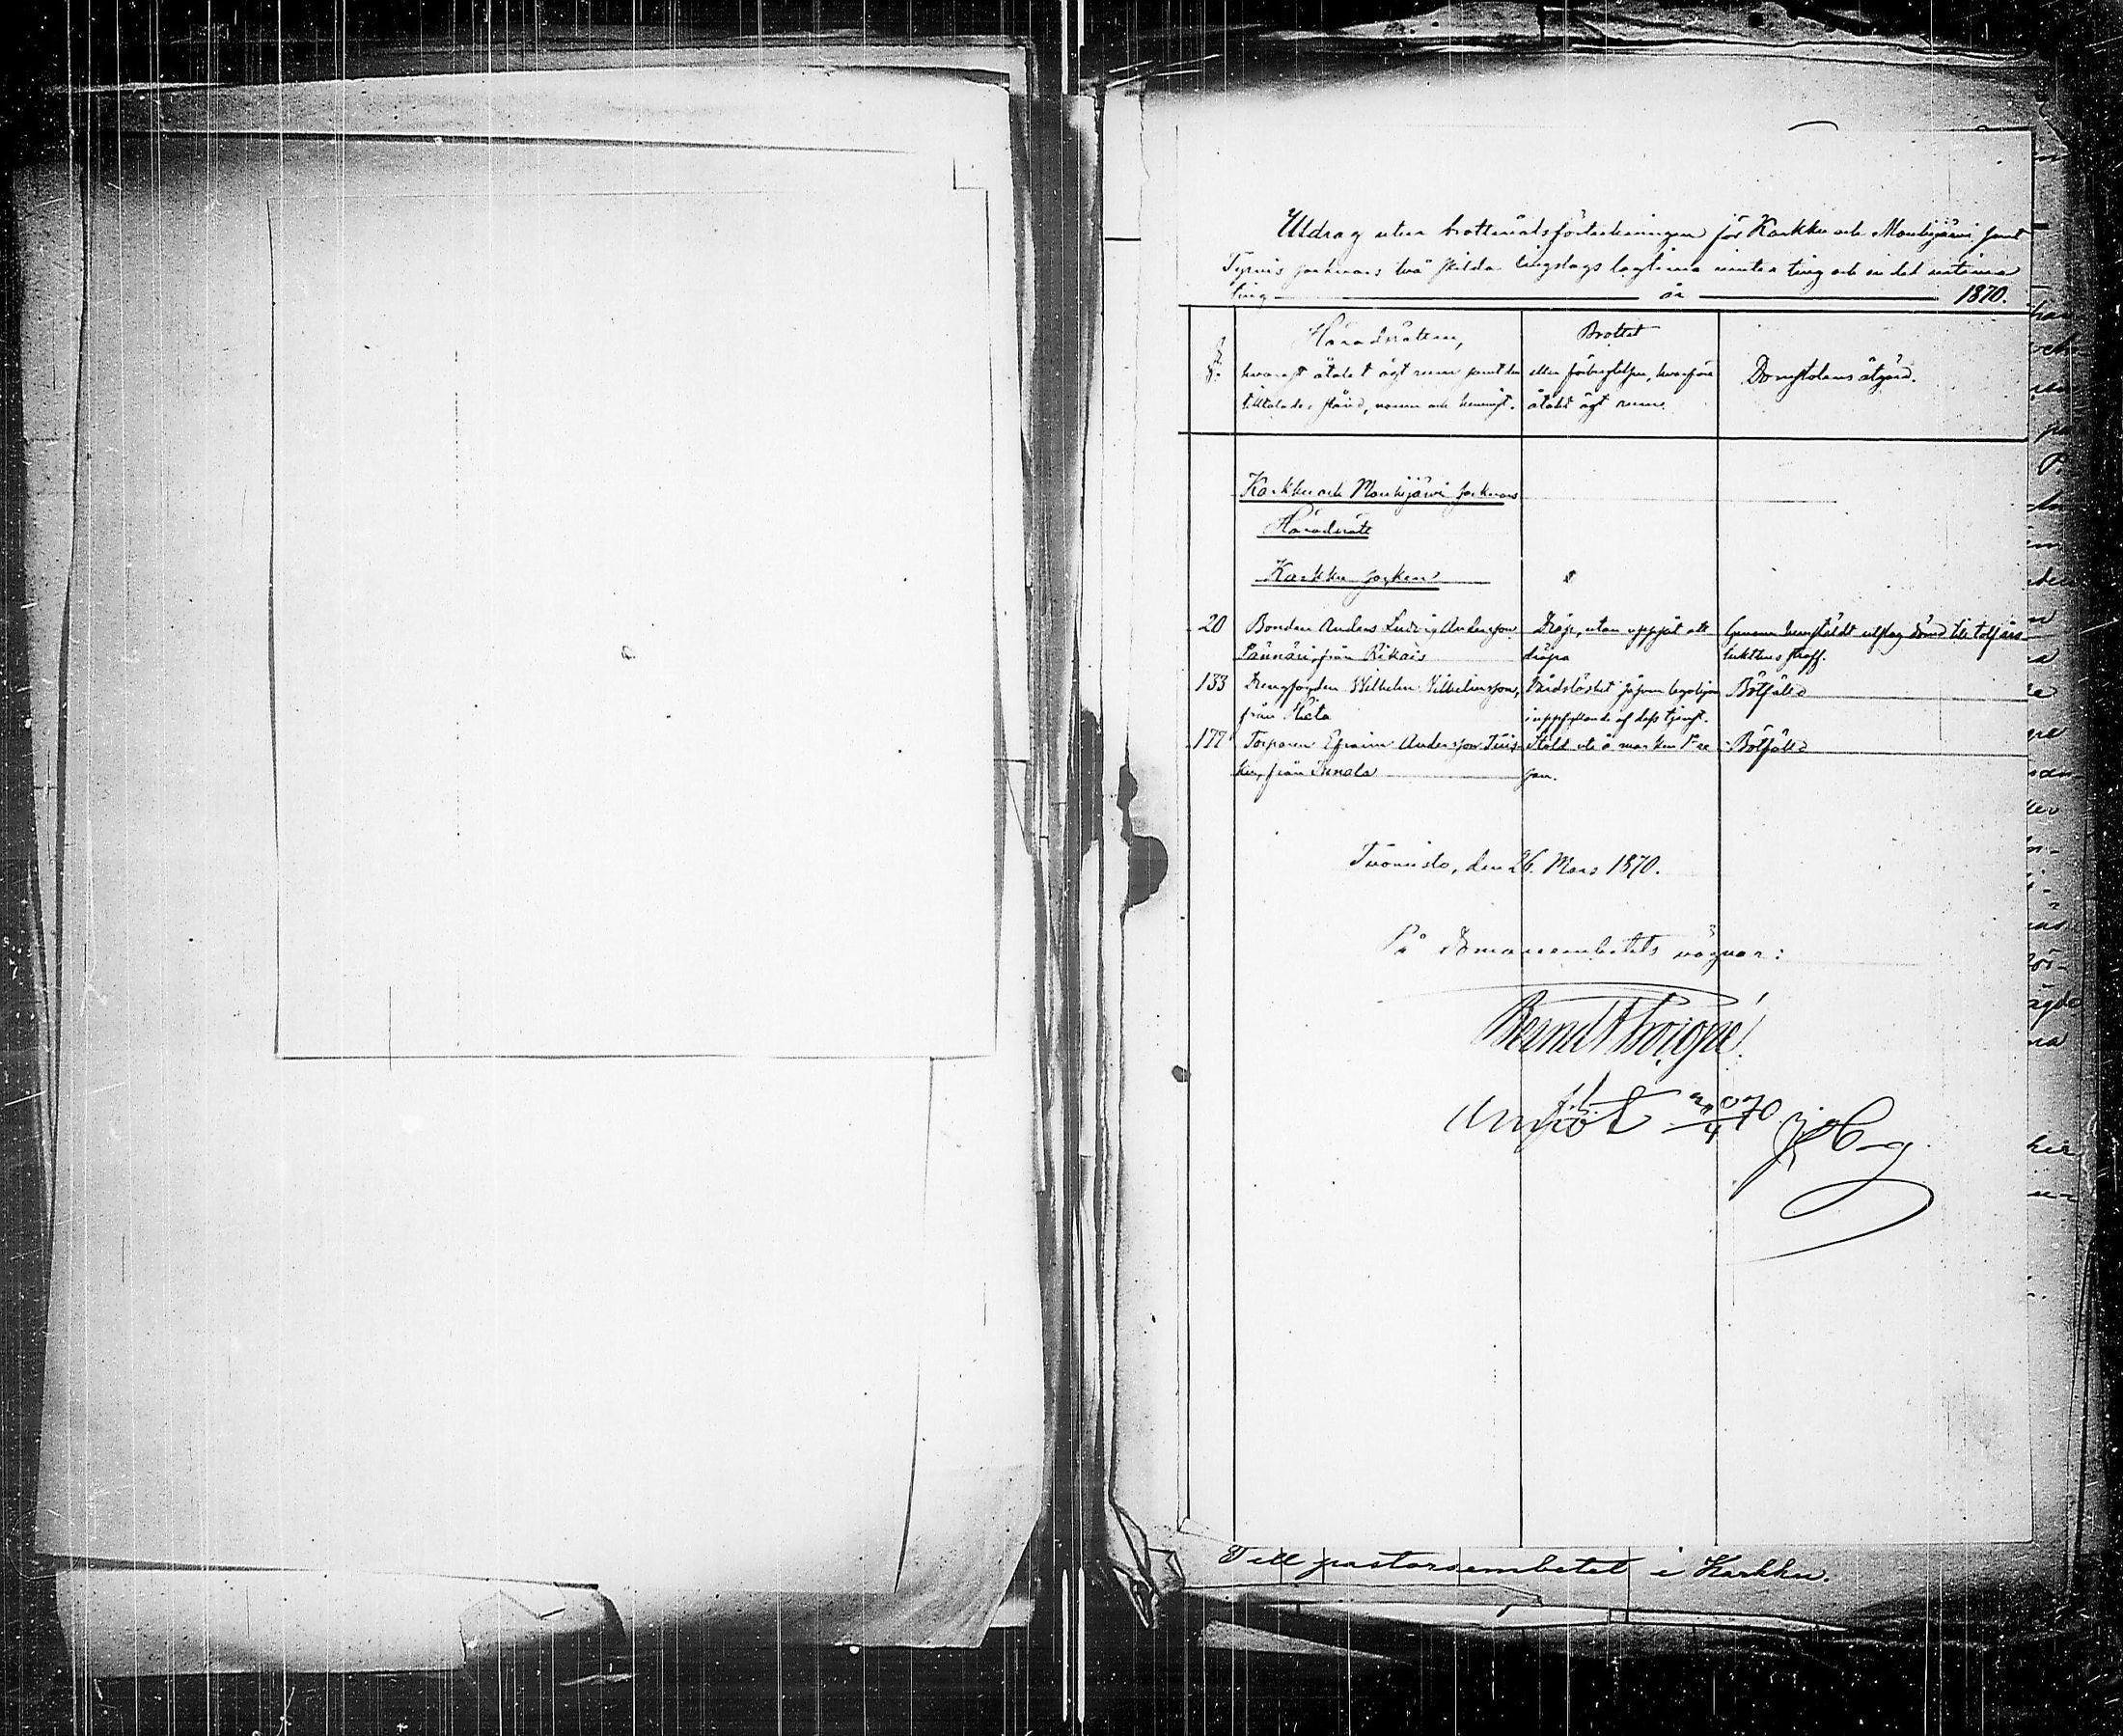 Utdrag utur brottmålsförteckningen för Karkku och Mouhijärvi samt
Tyrvis socknars två skilda tingslags lagtima vinter ting och en del urtima
ting år 1870.
Häradsrätten,
hvarest åtalet ägt rum samt den
tilltalades stånd, namn och hemvist.
Brottet
eller förbrytelsen, hvarföre
åtalet ägt rum.
Domstolens åtgärd.
Karkku och Mouhijärvi socknars
Häradsrätt
Karkku socken
20 Bonden Anders Ludvig Andersson
från Rikais
Dråp, utan uppsåt att
dråpa
Genom utslag dömd till tolf års
tukthus straff.
133 Drengfogden Wilhelm Wilhelmsson,
från
Vårdslöshet
uppfyllande af dess tjenst.
Bötfälld
177 Torparen Efraim Andersson
från
Stöld ute å marken
Bötfälld
Tuomisto, den 26. Mars 1870.
På Domareembetets vägnar:
Berndt
20/4 70
Till pastorsembetet i Karkku.